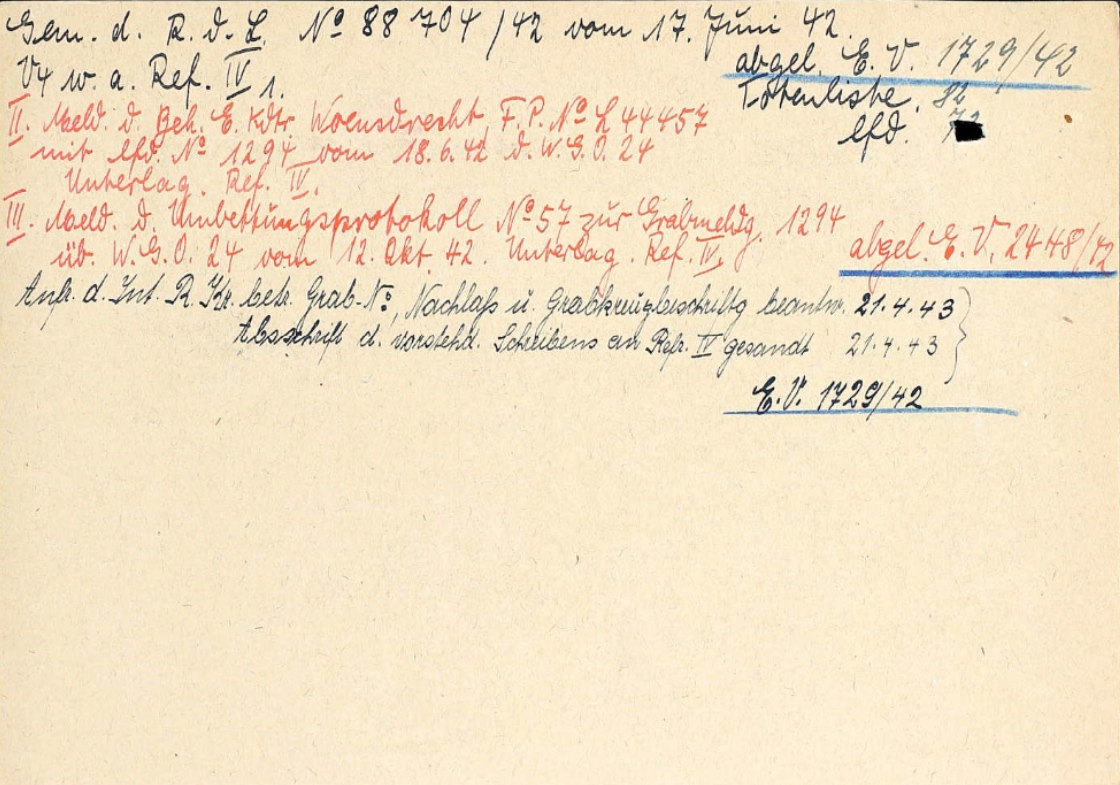 Gem. d. R. d. L. Nº 88 704/42 vom 17. Juni 42.
abgel. E. V. 1729/42
V4 w. a. Ref. IV 1.
Totenliste. 82
lfd.
II. Meld. d. Geh. E. Kdtr Woensdrecht, F.P. Nº L 44457
mit lfd. Nº 1294 vom 18.6.42 d. W.G.O. 24
Unterlag. Ref. IV.
III. Meld. d. Umbettungsprotokoll Nº 57 zur Grabmeldg. 1294
üb. W.G.O. 24 vom 12. Okt. 42. Unterlag. Ref. IV.
abgel. E. V. 2448/42
Anfr. d. Int. R. Kr. betr. Grab-Nº, Nachlaß u. Grabkreuzbeschriftg beantw. 21.4.43
Abschrift d. vorstehd. Schreibens an Refr. IV gesandt 21.4.43
E.V. 1729/42